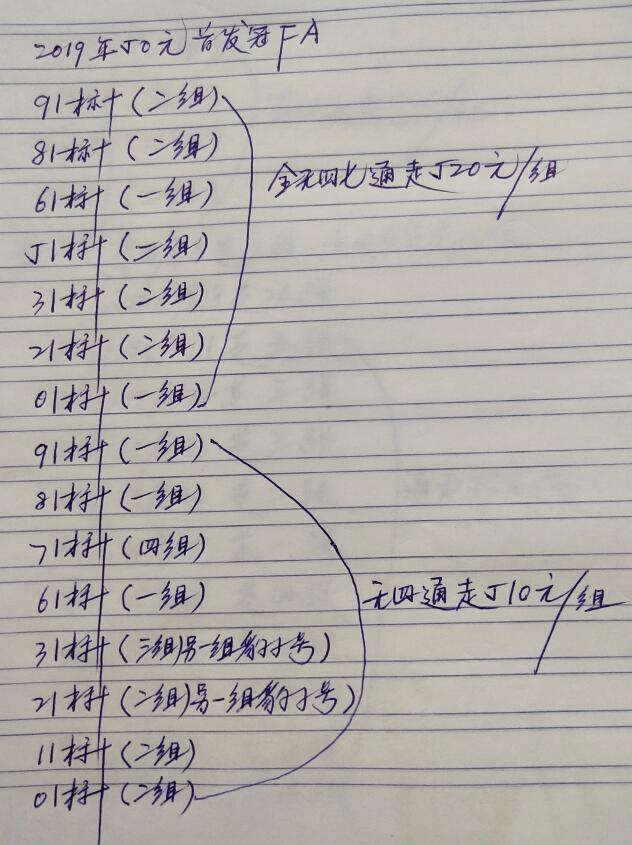 2019年50元首发冠FA
91标十(二组)
81标十(二组)
全无四七通走520元/组
61标十(一组)
51标十(二组)
31标十(二组)
21标十(二组)
01标十(一组)
91标十(一组)
81标十(一组)
71标十(四组)
61标十(一组)
无四通走510元/组
31标十(三组)另一组豹子号)
21标十(二组)另一组豹子号)
11标十(二组)
01标十(二组)